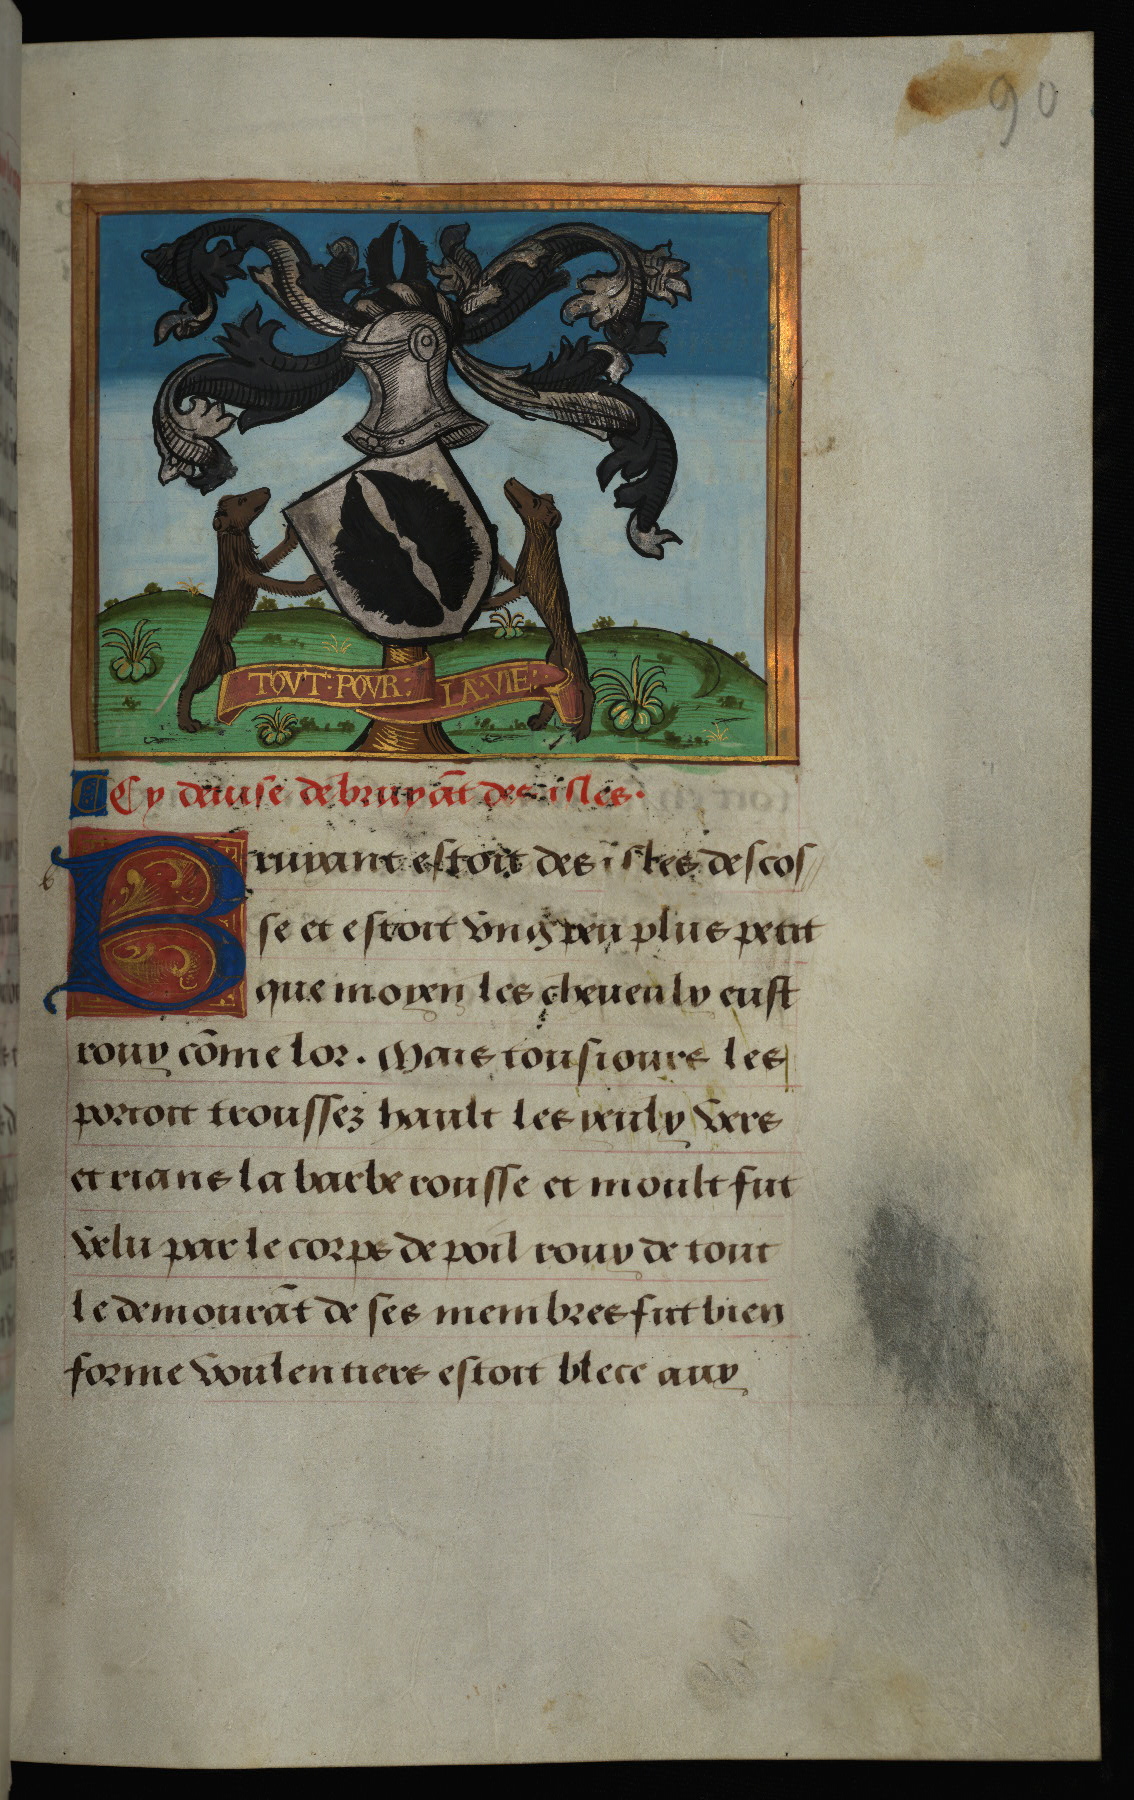 90
TOVT·POVR: LA·VIE:
Cy deuise de bruyāt des isles·
b
Bruyant estoit des isles descos//
se et estoit vng peu plus petit
que moyen les cheueulx eust
roux cōme lor. Mais tousiours les
portoit troussez hault les yeulx vers
et rians la barbe rousse et moult fut
velu par le corps de poil roux de tout
le demourāt de ses membres fut bien
forme voulentiers estoit blece aux